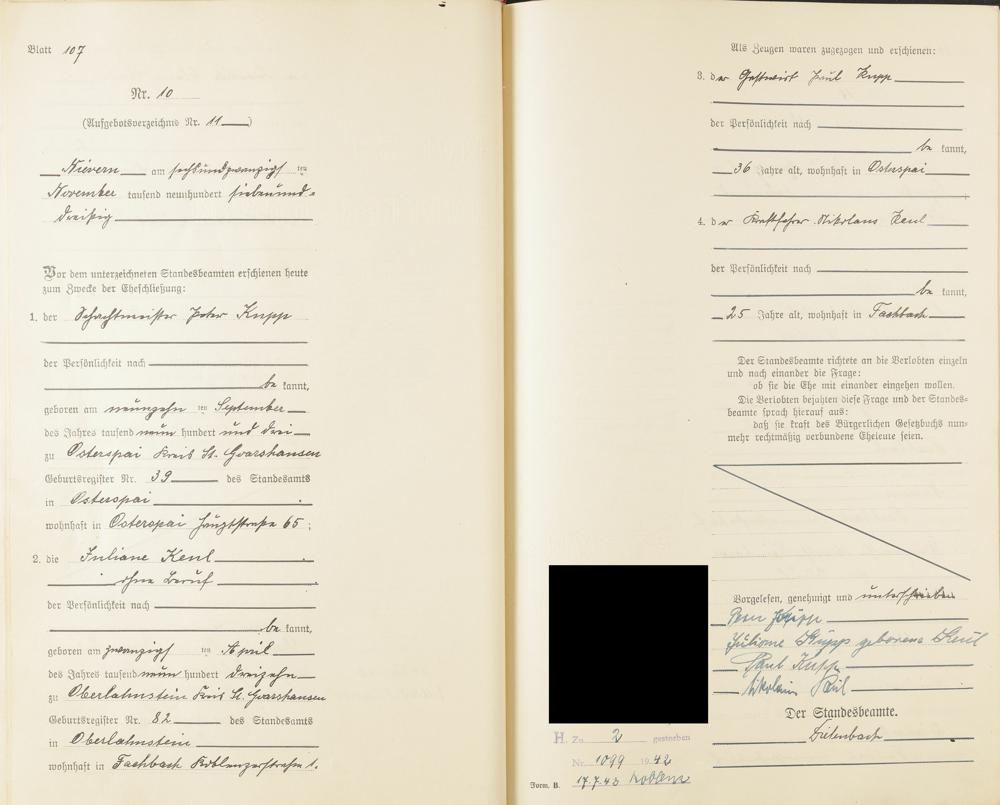 Blatt 107
Nr. 10
(Aufgebotsverzeichnis Nr. 11)
Nievern am sechsundzwanzigsten
November tausend neunhundert siebenund-
dreißig
Vor dem unterzeichneten Standesbeamten erschienen heute
zum Zwecke der Eheschließung:
1. der Schachtmeister Peter Knpp
der Persönlichkeit nach
be kannt,
geboren am neunzehn ten September
des Jahres tausend neun hundert und drei
zu Osterspai Kreis St. Goarshausen
Geburtsregister Nr. 39 des Standesamts
in Osterspai
wohnhaft in Osterspai Hauptstraße 65;
2. die Juliane Keul
ohne Beruf
der Persönlichkeit nach
be kannt,
geboren am zwanzigsten ten April
des Jahres tausend neun hundert dreizehn
zu Oberlahnstein Kreis St. Goarshausen
Geburtsregister Nr. 82 des Standesamts
in Oberlahnstein
wohnhaft in Fachbach Koblenzerstraße 1.
Als Zeugen waren zugezogen und erschienen:
3. der Gastwirt Paul
der Persönlichkeit nach
be kannt,
36 Jahre alt, wohnhaft in Osterspai
4. der Kraftfahrer Nikolaus Keul
der Persönlichkeit nach
be kannt,
25 Jahre alt, wohnhaft in Fachbach
Der Standesbeamte richtete an die Verlobten einzeln
und nach einander die Frage:
ob sie die Ehe mit einander eingehen wollen.
Die Verlobten bejahten diese Frage und der Standes=
beamte sprach hierauf aus:
daß sie kraft des Bürgerlichen Gesetzbuchs nun=
mehr rechtmäßig verbundene Eheleute seien.
Vorgelesen, genehmigt und unterschrieben
Juliane geborene Keul
Paul
Nikolaus Keul
Der Standesbeamte.
H. Zu 2 gestrieben
Nr. 1099 1942
Form. B. 17.7.43 Koblenz